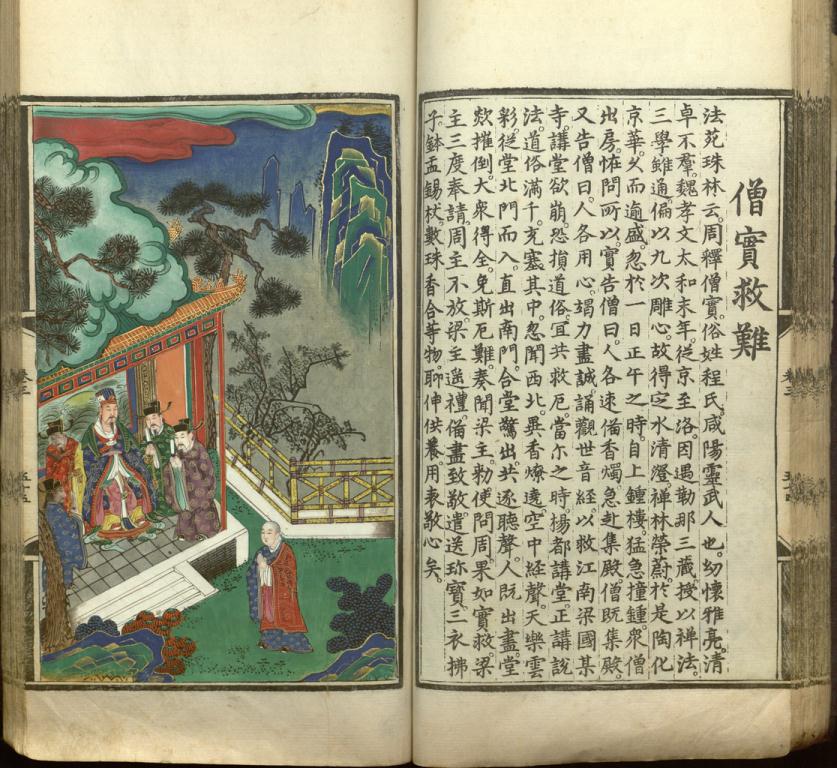 僧實救難
法苑珠林云。周釋僧實。俗姓程氏。咸陽靈武人也。幼懷雅亮。清
卓不羣。魏孝文太和末年。從京至洛。因遇勒那三藏。授以禅法。
三學雖通。偏以九次雕心。故得定水清澄。禅林榮蔚。於是陶化
京華。久而逾盛。忽於一日正午之時。自上鍾樓。猛急撞鍾。衆僧
出房。怪問所以。實告僧曰。人各速備香燭。急赴集殿。僧既集殿。
又告僧曰。人各用心。竭力盡誠。誦觀世音經。以救江南梁國某
寺。講堂欲崩。恐損道俗。宜共救厄。當尒之時。楊都講堂。正講說
法。道俗滿千。充塞其中。忽聞西北。異香燎遶。空中経聲。天樂雲
影。從堂北門而入。直出南門。合堂驚出。共逐聽聲。人既出盡。堂
欻摧倒。大衆得全。免斯厄難。奏聞梁主。勑使問周。果如實救。梁
主三度奉請。周主不放。梁主遥禮。備盡致敬。遣送珎寶。三衣拂
子。鉢盂錫杖。數珠香合等物。聊伸供養。用表敬心矣。